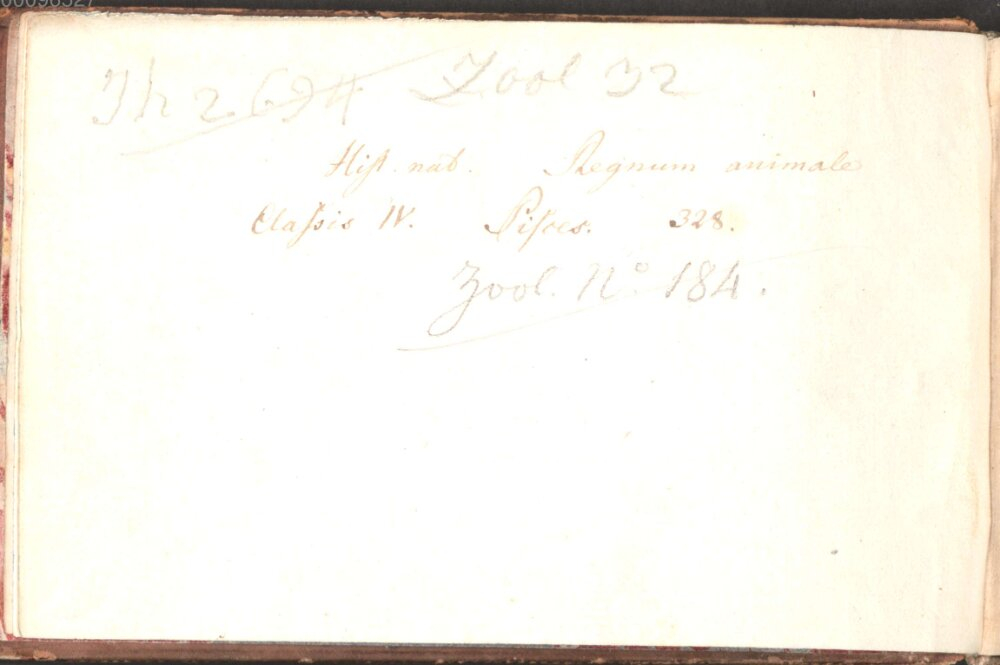 Th 2694 Zool 32
Hist. nat. Regnum animale
Classis IV. Pisces. 328.
Zool. No 184.